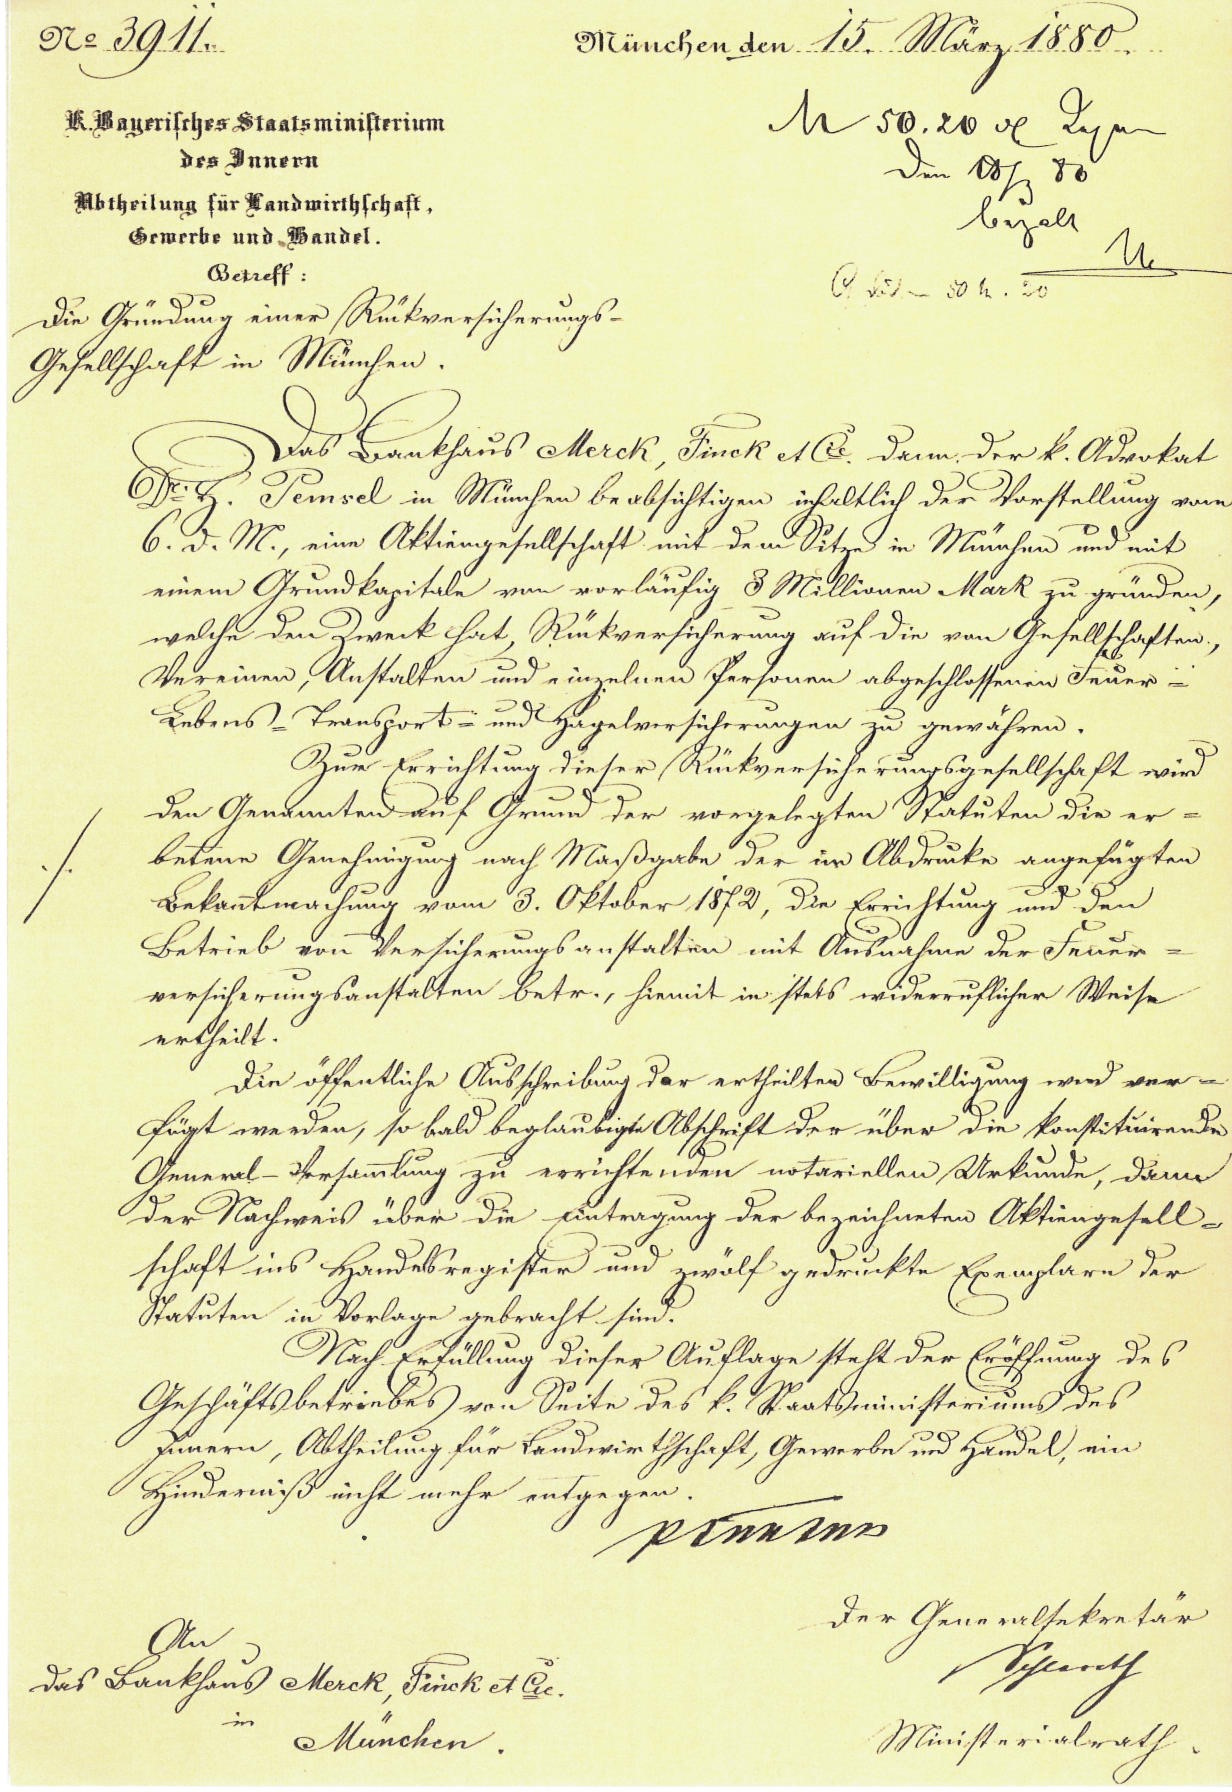 No 3911.
München den 15. März 1880.
K. Bayerisches Staatsministerium
des Innern
Abtheilung für Landwirthschaft,
Gewerbe und Handel.
Betreff:
Die Gründung einer Rückversicherungs-
Gesellschaft in München.
M 50.20
den 80
bezalt
50 20
Das Bankhaus Merck, Finck et Cie. dann der k. Advokat
Dr. H. Pemsel in München beabsichtigen inhaltlich der Vorstellung vom
6. d. M., eine Aktiengesellschaft mit dem Sitze in München und mit
einem Grundkapitale von vorläufig 3 Millionen Mark zu gründen,
welche den Zweck hat, Rückversicherung auf die von Gesellschaften,
Vereinen, Anstalten und einzelnen Personen abgeschlossenen Feuer-
Lebens- Transport- und Hagelversicherungen zu gewähren.
Zur Errichtung dieser Rückversicherungsgesellschaft wird
den Genannten auf Grund der vorgelegten Statuten die er-
betene Genehmigung nach Maßgabe der im Abdrucke angefügten
Bekanntmachung vom 3. Oktober 1872, die Errichtung und den
Betrieb von Versicherungsanstalten mit Ausnahme der Feuer-
versicherungsanstalten betr., hiemit in stets widerruflicher Weise
ertheilt.
Die öffentliche Ausschreibung der ertheilten Bewilligung wird ver-
fügt werden, so bald beglaubigte Abschrift der über die konstituirende
General-Versammlung zu errichtenden notariellen Urkunde, dann
der Nachweis über die Eintragung der bezeichneten Aktiengesell-
schaft ins Handelsregister und zwölf gedruckte Exemplare der
Statuten in Vorlage gebracht sind.
Nach Erfüllung dieser Auflage steht der Eröffnung des
Geschäftsbetriebes von Seite des k. Staatsministeriums des
Innern, Abtheilung für Landwirthschaft, Gewerbe und Handel, ein
Hinderniß nicht mehr entgegen.
Der Generalsekretär
An
das Bankhaus Merck, Finck et Cie.
in
München.
Ministerialrath.